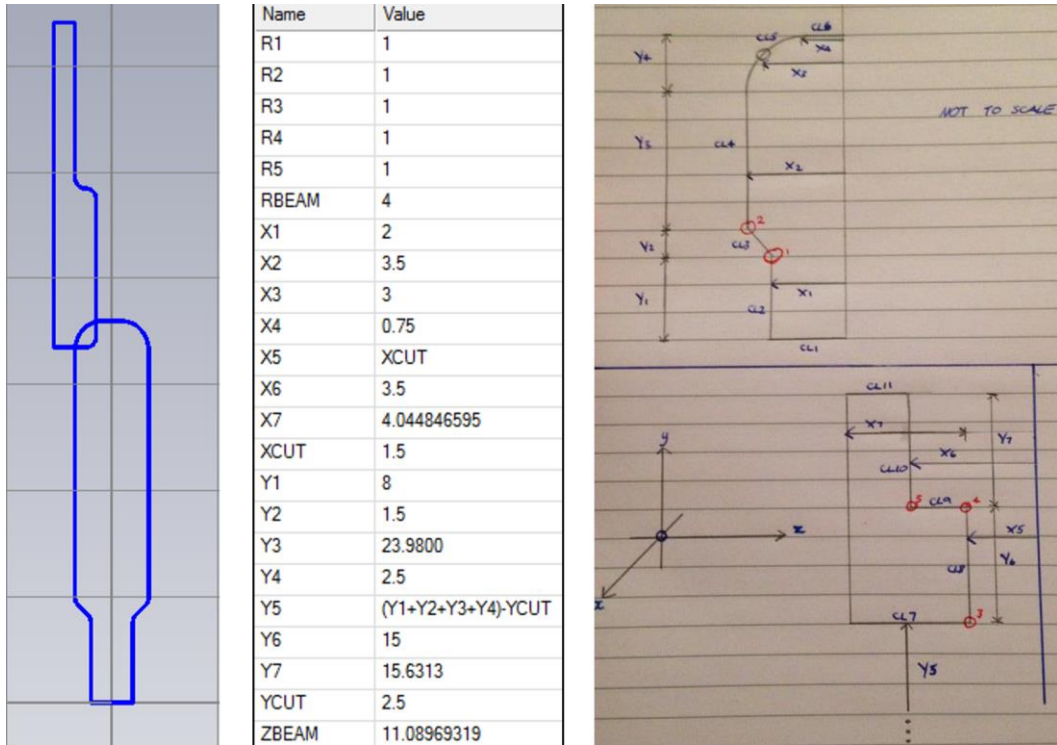 Name Value
R1 1
R2 1
R3 1
R4 1
R5 1
RBEAM 4
X1 2
X2 3.5
X3 3
X4 0.75
X5 XCUT
X6 3.5
X7 4.044846595
XCUT 1.5
Y1 8
Y2 1.5
Y3 23.9800
Y4 2.5
Y5 (Y1+Y2+Y3+Y4)-YCUT
Y6 15
Y7 15.6313
YCUT 2.5
ZBEAM 11.08969319
CL6
CL5
X4
Y4
X3
NOT TO SCALE
Y3
CL4
X2
2
Y2
CL3
1
X1
Y1
CL2
CL1
CL11
y
X7
Y7
X6
CL10
5
CL9
4
z
X5
CL8
Y6
x
CL7
3
Y5